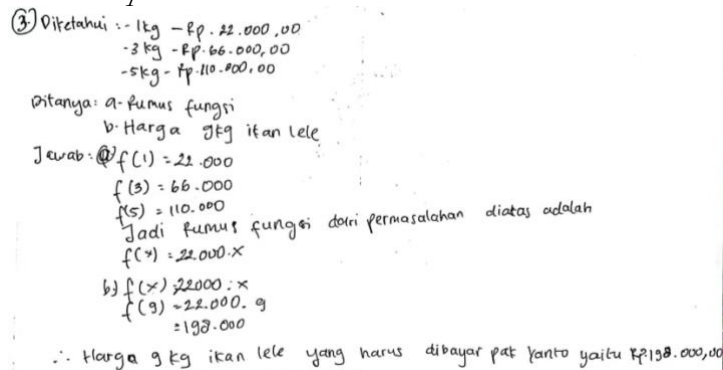 3. Diketahui : - 1kg - Rp. 22.000,00
- 3 kg - Rp. 66.000,00
- 5kg - Rp. 110.000,00
Ditanya: a. Rumus fungsi
b. Harga 9kg ikan lele
Jawab: a) f(1) = 22.000
f(3) = 66.000
f(5) = 110.000
Jadi Rumus fungsi dari permasalahan diatas adalah
f(x) = 22.000.x
b) f(x) = 22000 . x
f(9) = 22.000. 9
= 198.000
∴ Harga 9 kg ikan lele yang harus dibayar pak Yanto yaitu Rp. 198.000,00